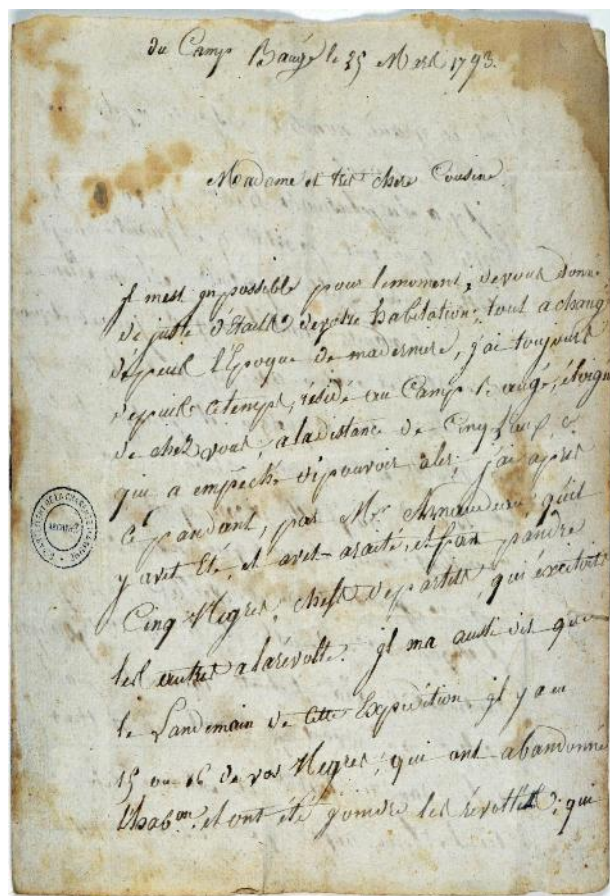 du Camp Baugé le 25 Mars 1793.
Madame et tres chere Cousine
jl mest jnpossible pour lemoment, devous donné
de juste d'Etaille devotre habitation, tout a changé
depeuis l'Epoque de maderniere, j'ai toujours
depuis cetemps, résidé au Camp Baugé, éloigné
de chez vous, aladistance de Cinq
qui a empeché dipouvoir aler; j'ai apris
ce pandant, par Mr. Arnaudeau quil
y avet Eté, et avet araité, et fait pandre
Cinq Negres, chefs departis, qui éxcitoits
les autres alarévolte. jl ma aussi dit que
le Landemain de cette Expedition, jl y a eu
15 ou 16 de vos Negres, qui ont abandonné
Lhabon. et ont été joindre les révoltés; qui
ARCHIVES